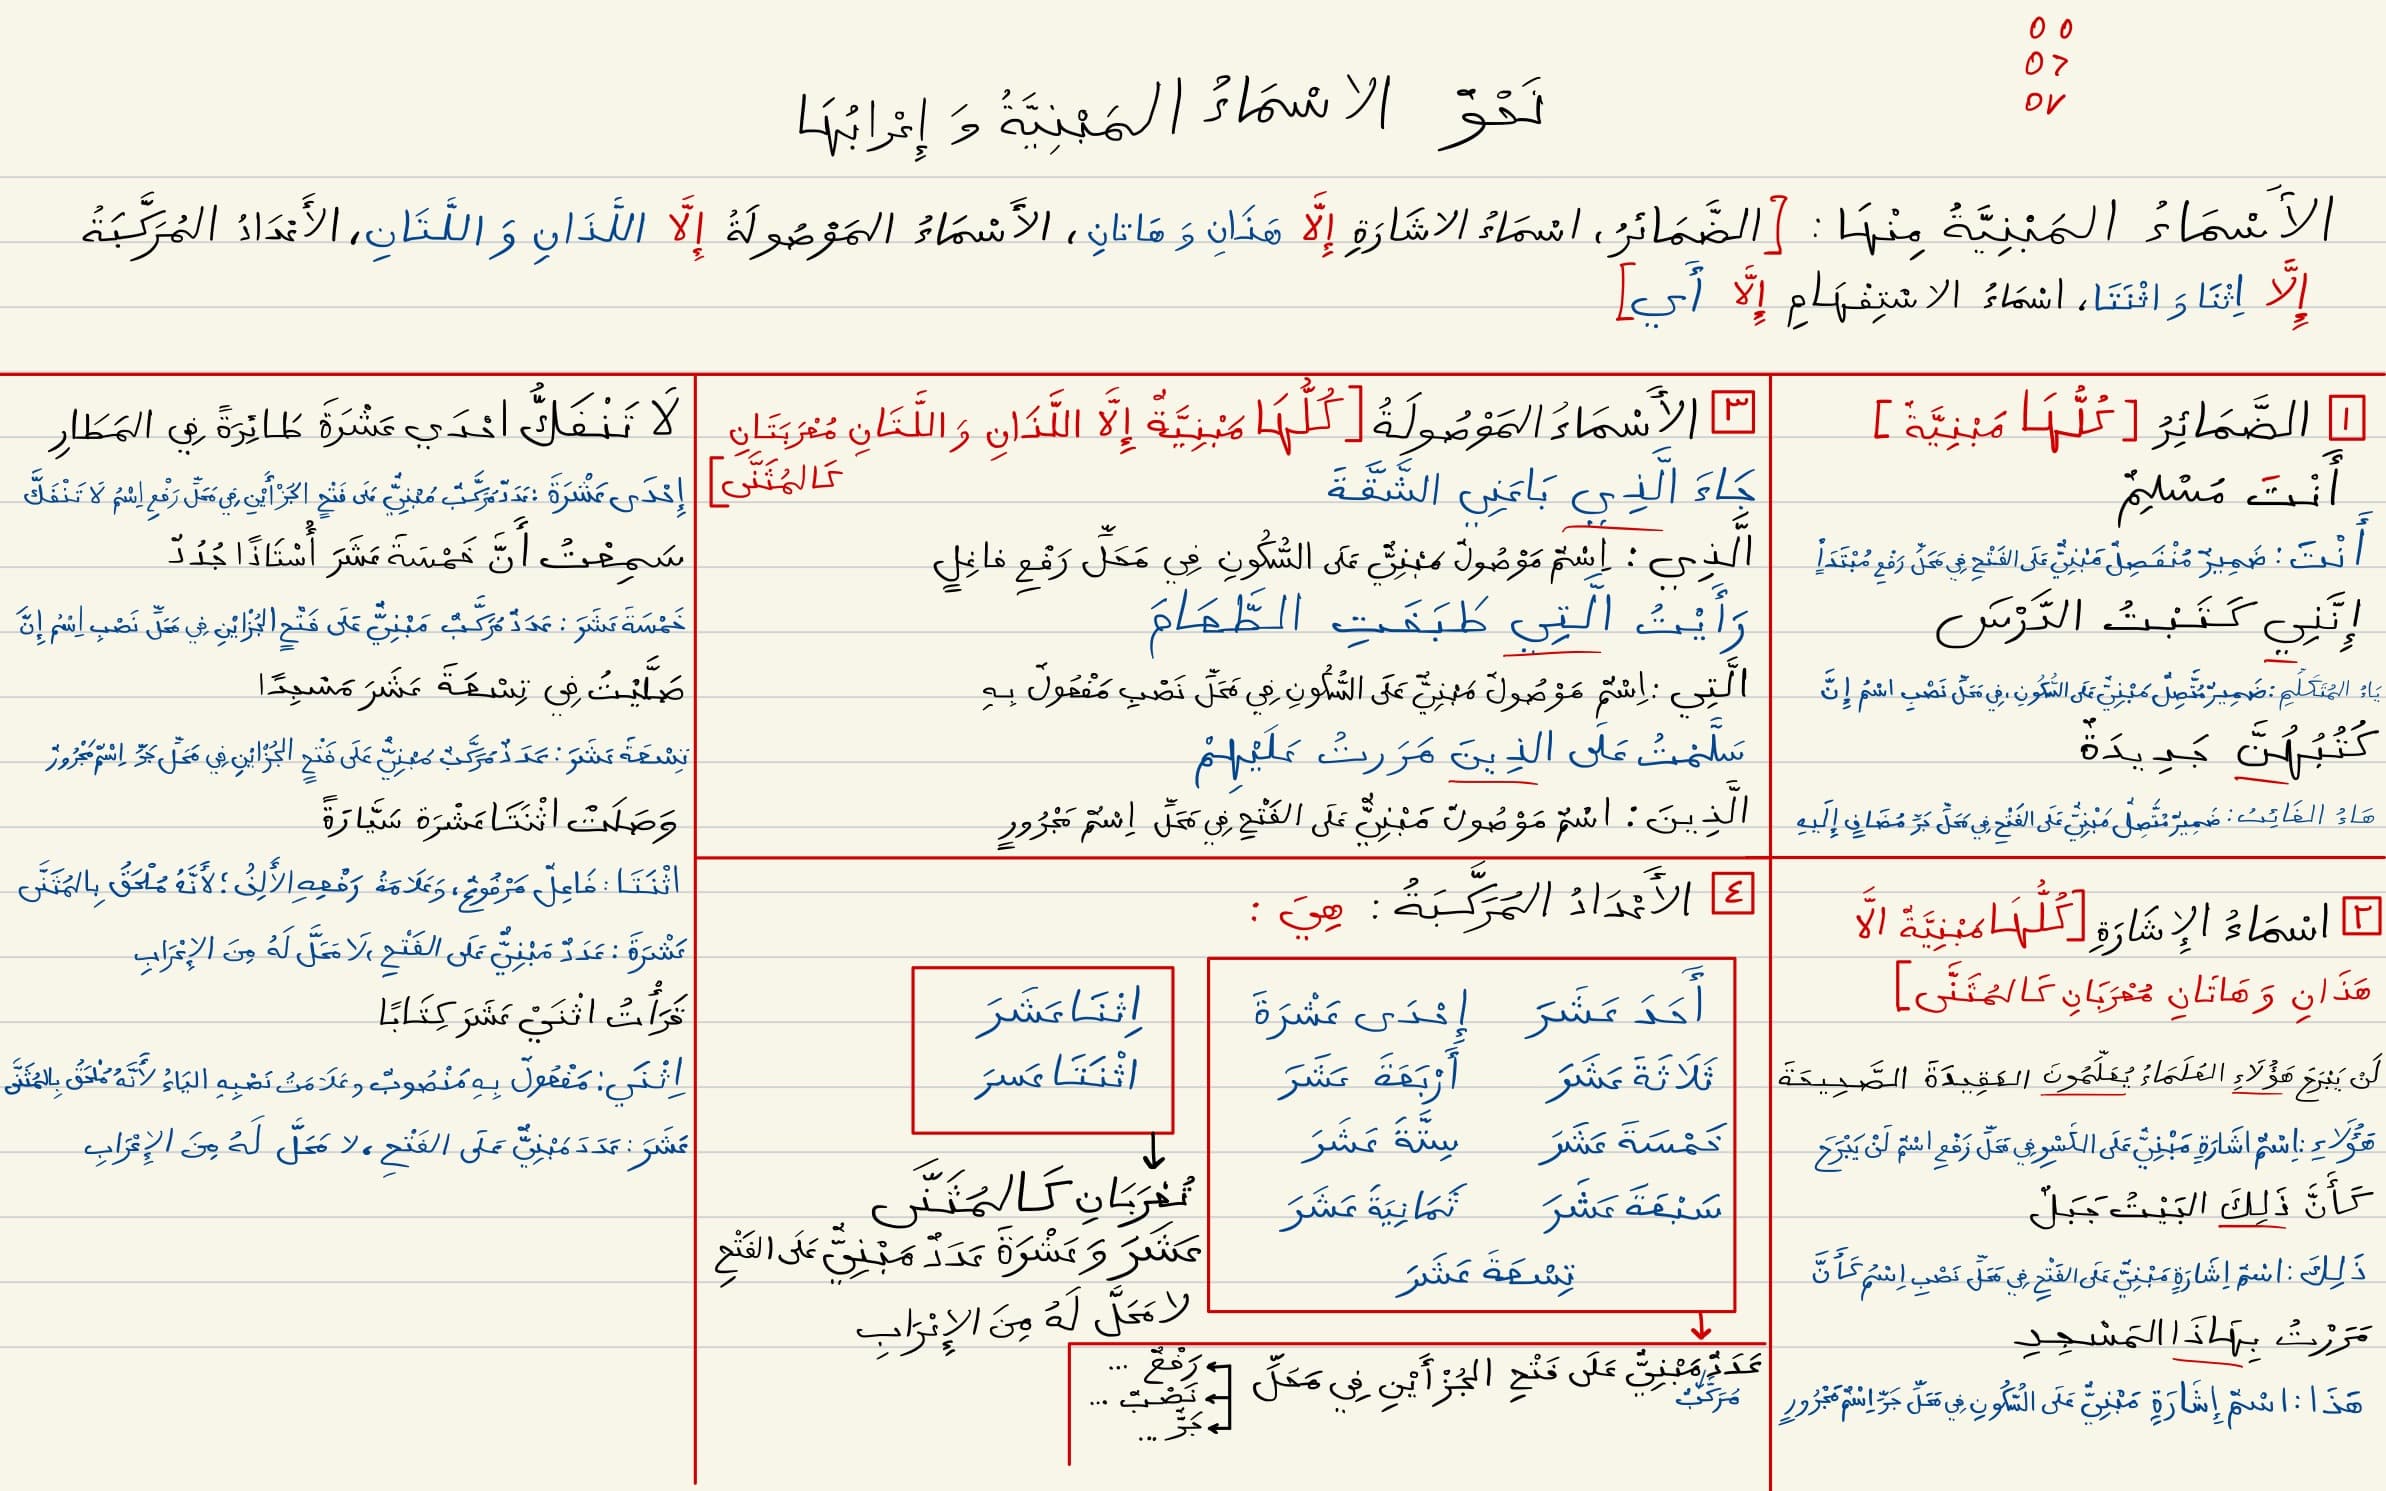 ٥٥
٥٦
٥٧
نَحْوٌ الاسْمَاءُ المَبْنِيَّةُ وَ إِعْرَابُهَا
الأَسْمَاءُ المَبْنِيَّةُ مِنْهَا : [الضَّمَائِرُ، اسْمَاءُ الاشَارَةِ إِلَّا هَذَانِ وَ هَاتانِ، الأَسْمَاءُ المَوْصُولَةُ إِلَّا اللَّذَانِ وَ اللَّتَانِ، الأَعْدَادُ المُرَكَّبَةُ
إِلَّا اِثْنَا وَ اثْنَتَا، اسْمَاءُ الاسْتِفْهَامِ إِلَّا أَي]
١ الضَّمَائِرُ [كُلُّهَا مَبْنِيَّةٌ]
أَنْتَ مُسْلِمٌ
أَنْتَ : ضَمِيرٌ مُنْفَصِلٌ مَبْنِيٌّ عَلَى الفَتْحِ فِي مَحَلِّ رَفْعٍ مُبْتَدَأ
إِنَّنِي كَتَبْتُ الدَّرْسَ
يَاءُ المُتَكَلِّمِ : ضَمِيرٌ مُتَّصِلٌ مَبْنِيٌّ عَلَى السُّكُونِ، فِي مَحَلِّ نَصْبِ اسْمُ إِنَّ
كُتُبُهُنَّ جَدِيدَةٌ
هَاءُ الغَائِبُ : ضَمِيرٌ مُتَّصِلٌ مَبْنِيٌّ عَلَى الفَتْحِ فِي مَحَلِّ جَرِّ مُضَافٍ إِلَيهِ
٢ اسْمَاءُ الإِشَارَةِ [كُلُّهَا مَبْنِيَّةٌ الَّا
هَذَانِ وَ هَاتَانِ مُعْرَبَانِ كَالمُثَنَّى]
لَنْ يَبْرَحَ هَؤُلَاءِ العُلَمَاءُ يُعَلِّمُونَ العَقِيدَةَ الصَّحِيحَةَ
هَؤُلَاءِ : اِسْمُ اشَارَةٍ مَبْنِيٌّ عَلَى الكَسْرِ فِي مَحَلِّ رَفْعِ اسْمُ لَنْ يَبْرَحَ
كَأَنَّ ذَلِكَ البَيْتُ جَبَلٌ
ذَلِكَ : اسْمُ إِشَارَةٍ مَبْنِيٌّ عَلَى الفَتْحِ فِي مَحَلِّ نَصْبِ اِسْمُ كَأَنَّ
مَرَرْتُ بِهَاذَا المَسْجِدِ
هَذَا : اسْمُ إِشَارَةٍ مَبْنِيٌّ عَلَى السُّكُونِ فِي مَحَلِّ جَرِّ اِسْمٌ مَجْرُورٍ
٣ الأَسْمَاءُ المَوْصُولَةُ [كُلُّهَا مَبْنِيَّةٌ إِلَّا اللَّذَانِ وَ اللَّتَانِ مُعْرَبَتَانِ
كَالمُثَنَّى]
جَاءَ الَّذِي بَاعَنِي الشَّقَّةَ
الَّذِي : إِسْمٌ مَوْصُولٌ مَبْنِيٌّ عَلَى السُّكُونِ فِي مَحَلِّ رَفْعِ فاعِلٍ
رَأَيْتُ الَّتِي طَبَخَتِ الطَّعَامَ
الَّتِي : اِسْمٌ مَوْصُولٌ مَبْنِيٌّ عَلَى السُّكُونِ فِي مَحَلِّ نَصْبِ مَفْعُولٌ بِهِ
سَلَّمْتُ عَلَى الذِينَ مَرَرتُ عَلَيْهِمْ
الَّذِينَ : اسْمٌ مَوْصُولٌ مَبْنِيٌّ عَلَى الفَتْحِ فِي مَحَلِّ اِسْمٌ مَجْرُورٍ
٤ الأَعْدَادُ المُرَكَّبَةُ : هِيَ :
أَحَدَ عَشَرَ إِحْدَى عَشْرَةَ
ثَلَاثَةَ عَشَرَ أَرْبَعَةَ عَشَرَ
خَمْسَةَ عَشَرَ سِتَّةَ عَشَرَ
سَبْعَةَ عَشَرَ ثَمَانِيَةَ عَشَرَ
تِسْعَةَ عَشَرَ
عَدَدٌ مَبْنِيٌّ عَلَى فَتْحِ الجُزْأَيْنِ فِي مَحَلِّ
مُرَكَّبٌ
رَفْعٌ ...
نَصْبٌ ...
جَرٌّ ...
اِثْنَا عَشَرَ
اثْنَتَا عسرَ
تُعْرَبَانِ كَالمُثَنَّى
عَشَرَ وَ عَشْرَةَ عَدَدٌ مَبْنِيٌّ عَلَى الفَتْحِ
لا مَحَلَّ لَهُ مِنَ الإِعْرَابِ
لَا تَنْفَكُّ احْدَي عَشْرَةَ طَائِرَةً فِي المَطَارِ
إِحْدَى عَشْرَةَ : عَدَدٌ مُرَكَّبٌ مَبْنِيٌّ عَلَى فَتْحِ الجُزْأَيْنِ فِي مَحَلِّ رَفْعِ اِسْمُ لَا تَنْفَكَّ
سَمِعْتُ أَنَّ خَمْسَةَ عَشَرَ أُسْتَاذًا جُدُدٌ
خَمْسَةَ عَشَرَ : عَدَدٌ مُرَكَّبٌ مَبْنِيٌّ عَلَى فَتْحِ الجُزْايْنِ فِي مَحَلِّ نَصْبِ اِسْمُ إِنَّ
صَلَّيْتُ فِي تِسْعَةَ عَشَرَ مَسْجِدًا
تِسْعَةَ عَشَرَ : عَدَدٌ مُرَكَّبٌ مَبْنِيٌّ عَلَى فَتْحِ الجُزْايْنِ فِي مَحَلِّ جَرِّ اِسْمٌ مَجْرُورٌ
وَصَلَتْ اثْنَتَا عَشْرَة سَيَّارَةً
اثْنَتَا : فَاعِلٌ مَرْفُوعٌ، وَعَلَامَةُ رَفْعِهِ الأَلِفُ ؛ لأَنَّهُ مُلْحَقٌ بِالمُثَنَّى
عَشْرَةَ : عَدَدٌ مَبْنِيٌّ عَلَى الفَتْحِ، لَا مَحَلَّ لَهُ مِنَ الإِعْرَابِ
قَرَأْتُ اثْنَيْ عَشَرَ كِتَابًا
اِثْنَي : مَفْعُولٌ بِهِ مَنْصُوبٌ وعَلَامَتُ نَصْبِهِ اليَاءُ لأَنَّهُ مُلْحَقٌ بِالمُثَنَّى
عَشَرَ : عَدَدَ مَبْنِيٌّ عَلَى الفَتْحِ، لا مَحَلَّ لَهُ مِنَ الإِعْرَابِ